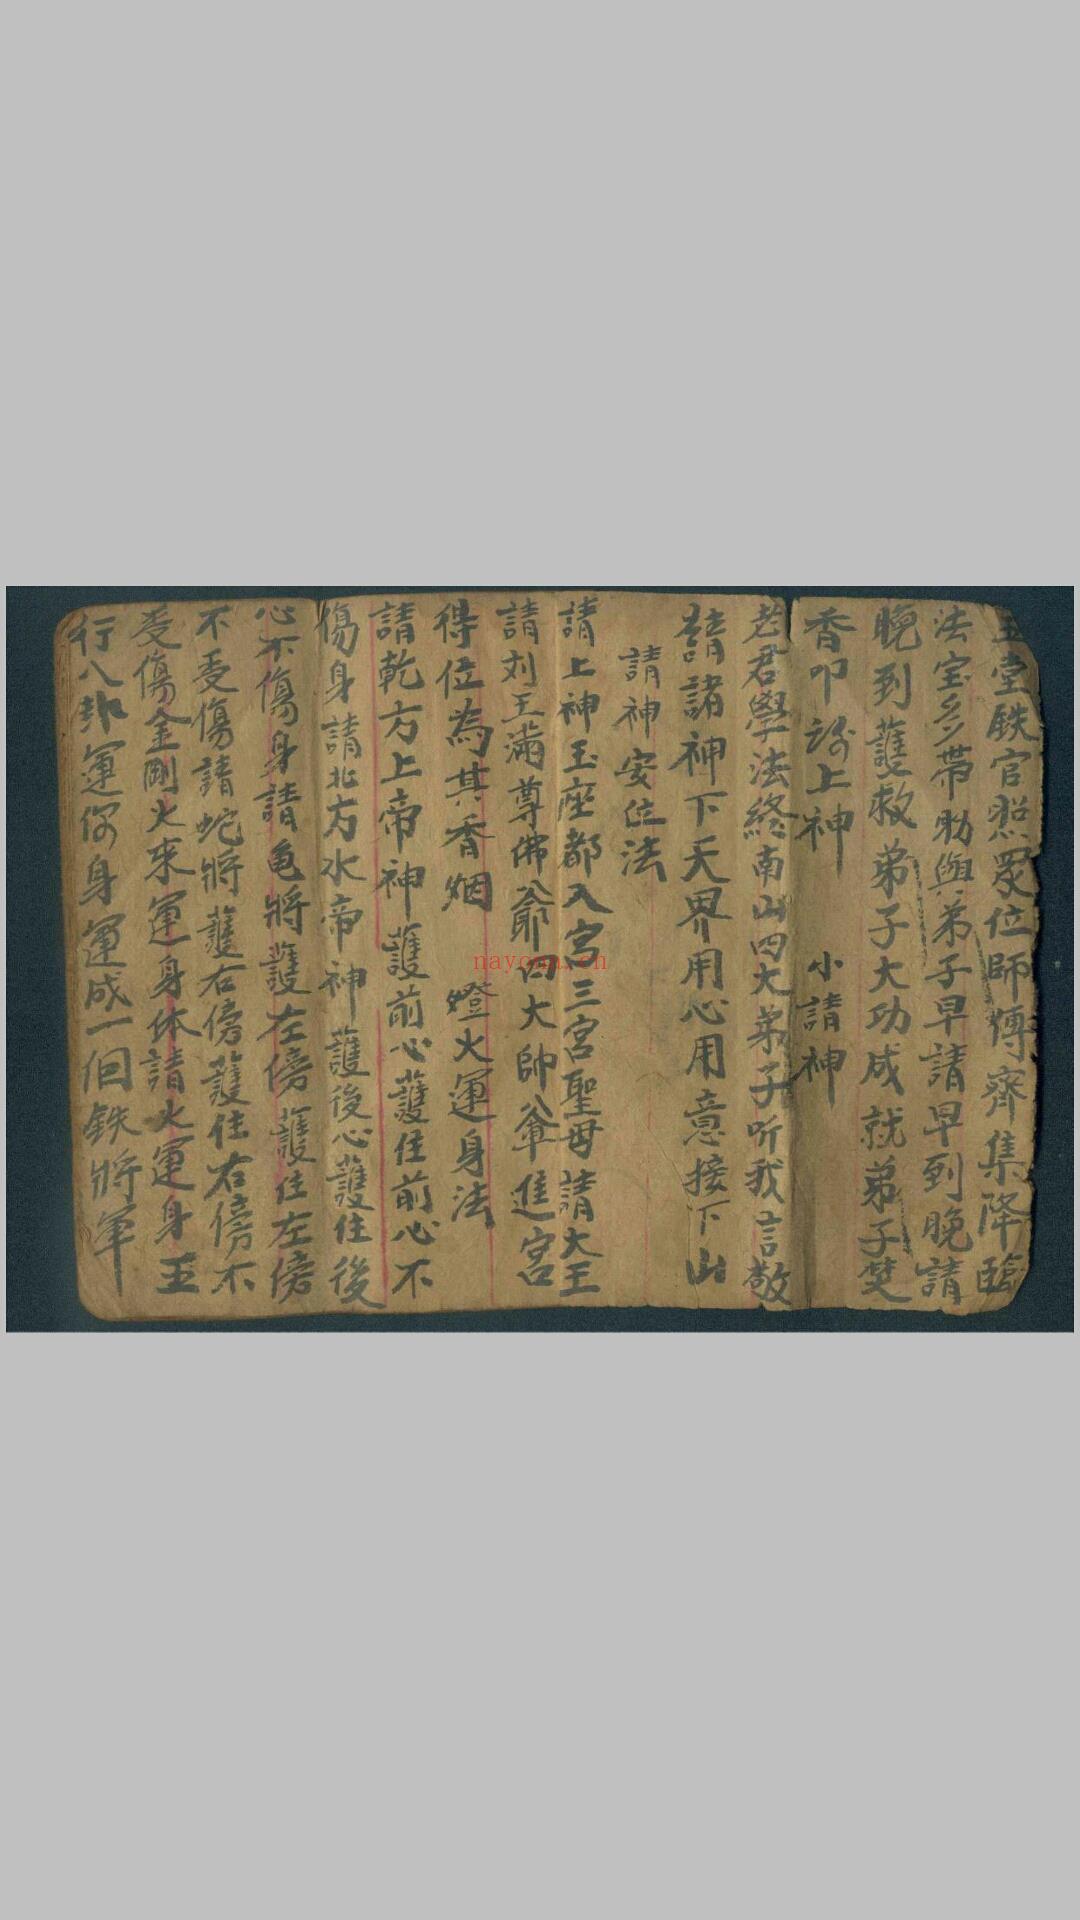 玉堂鉄官照眾位師傅齊集降臨
法宝多帶助與弟子早請早到晚請
晚到護救弟子大功成就弟子焚
香叩 上神 小請神
老君學法終南山四大弟子听我言敬
請諸神下天界用心用意接下山
請神安位法
請上神玉座都入宮三宮聖母請大王
請刘王滿尊佛爺 大帥爺進宮
得位為其香烟 燈火運身法
請乾方上帝神護前心護住前心不
傷身請北方水帝神護後心護住後
心不傷身請龟將護左傍護住左傍
不受傷請蛇將護右傍護住右傍不
受傷金剛火來運身体請火運身五
行八卦運你身運成一個鉄將軍
nayona.cn